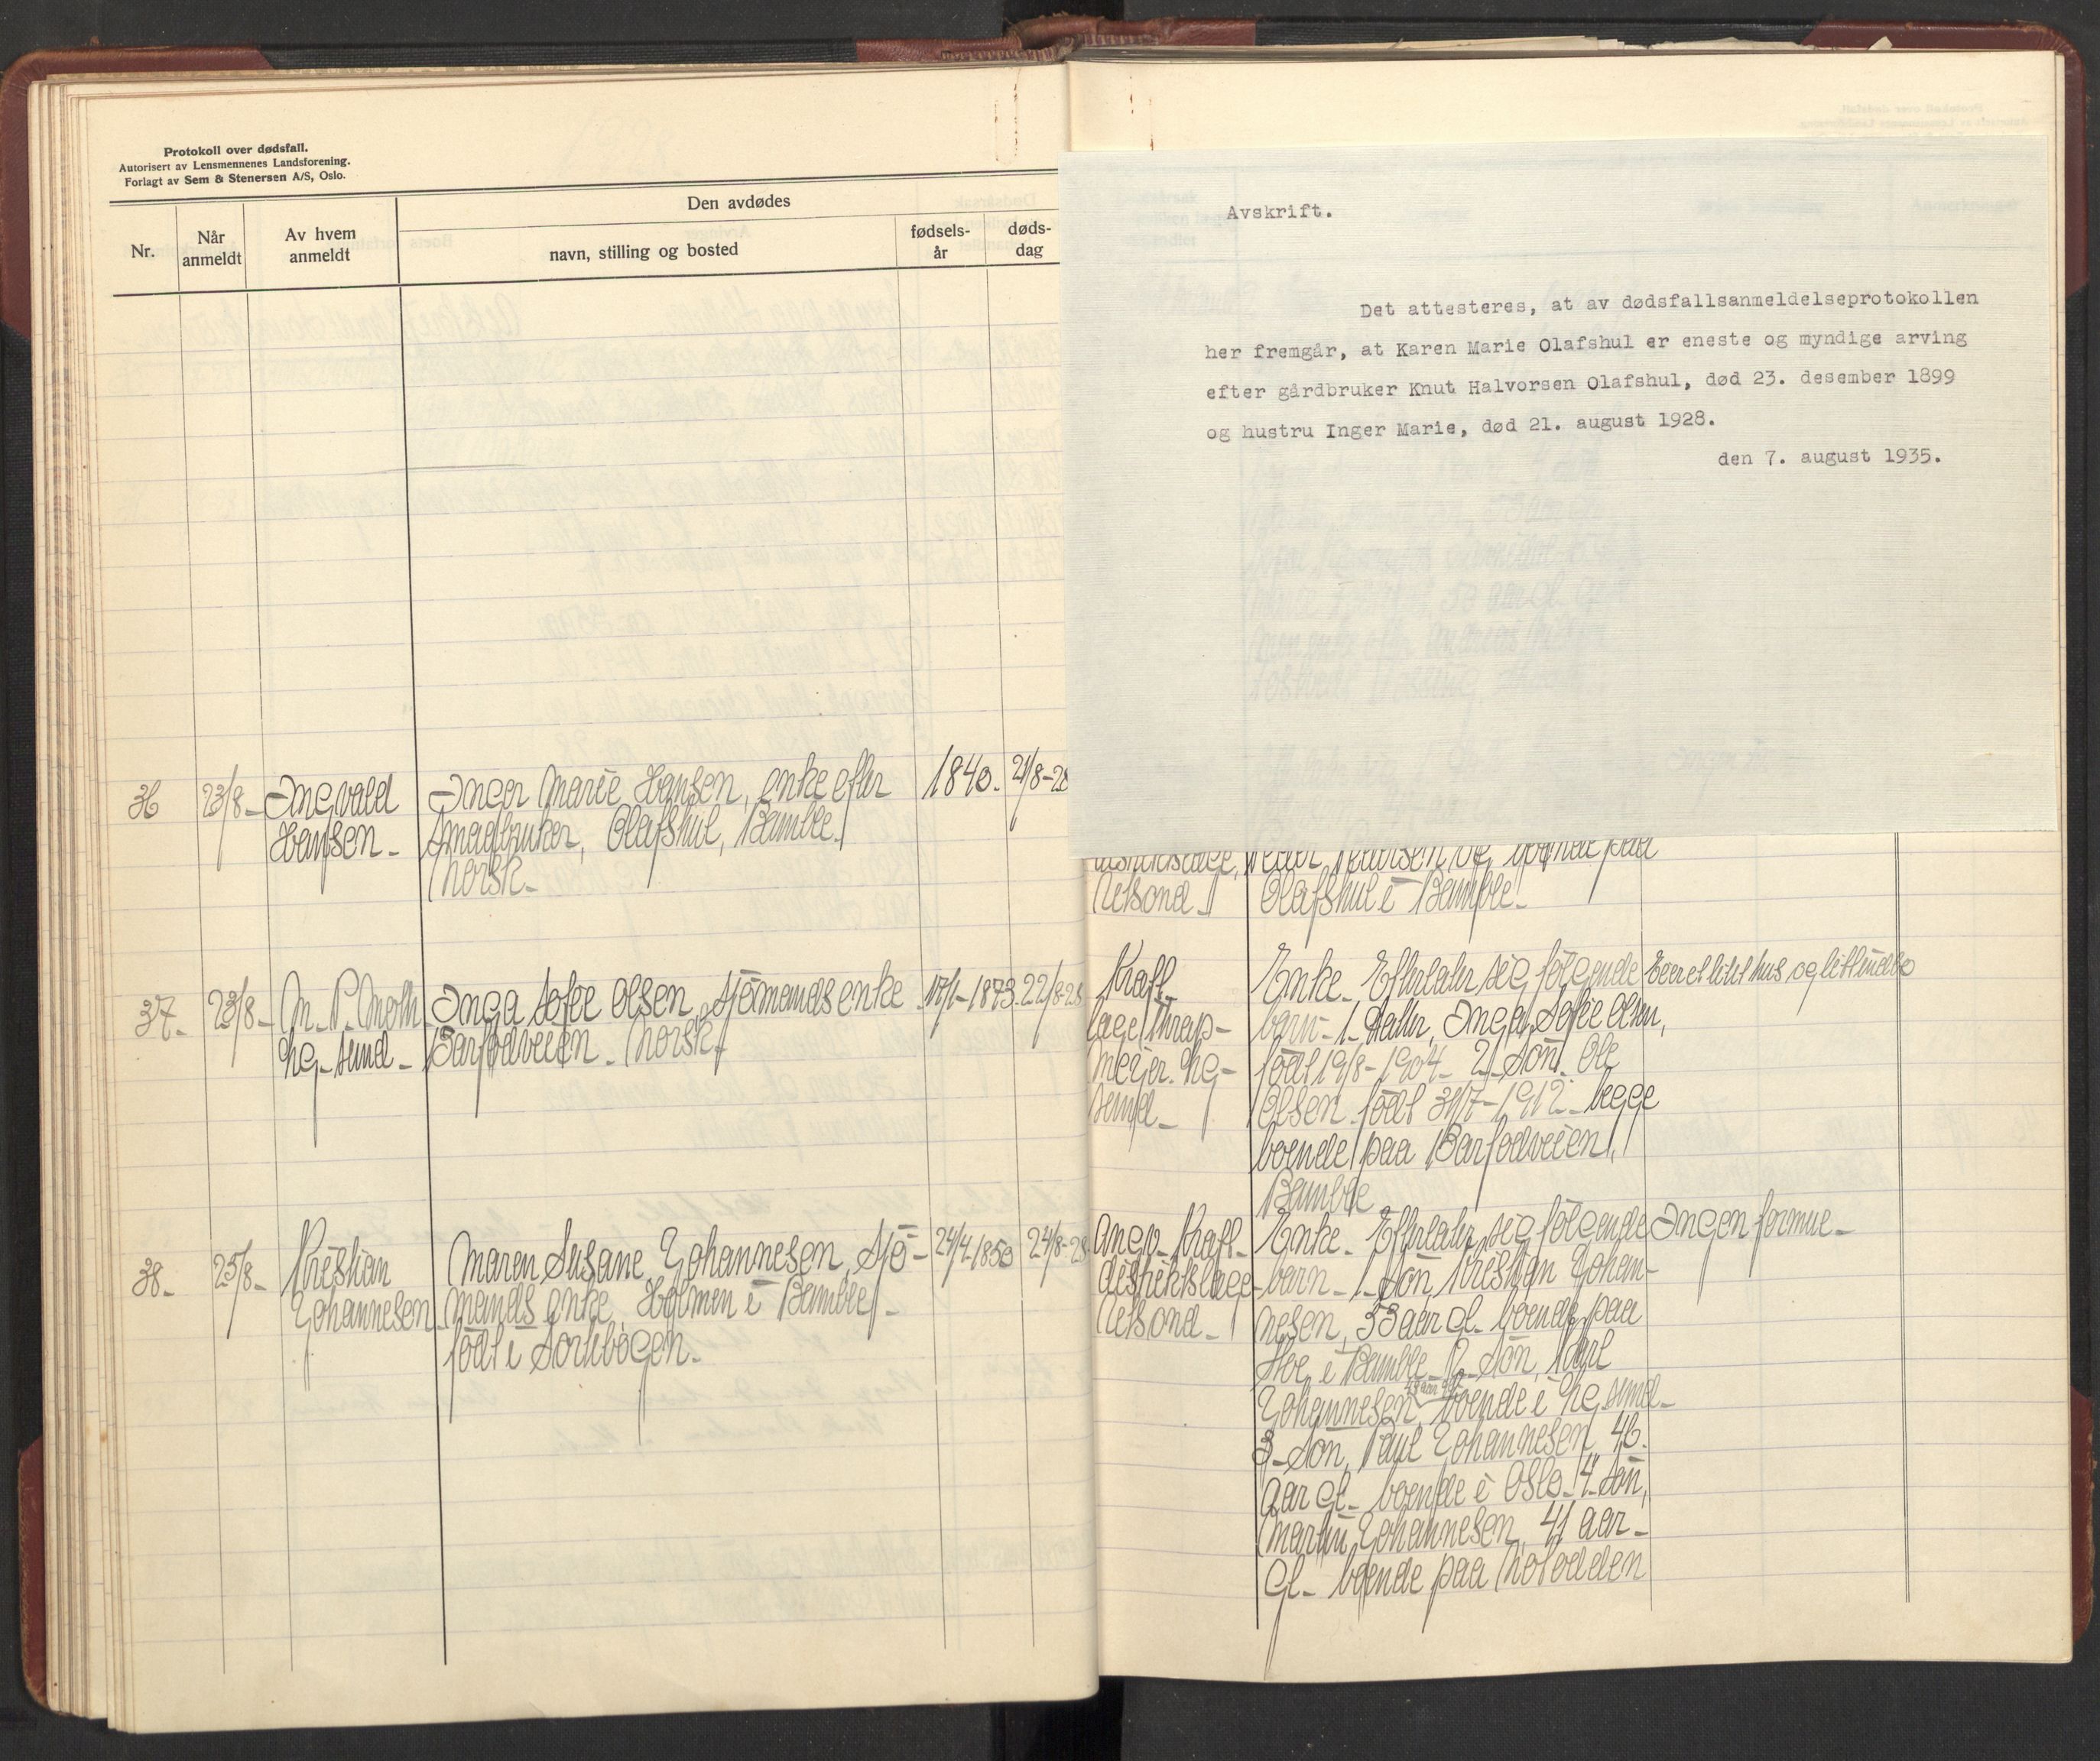 Protokoll over dødsfall.
Autorisert av Lensmennenes Landsforening.
Forlagt av Sem & Stenersen A/S, Oslo.
Nr.
Når
anmeldt
Av hvem
anmeldt
Den avdødes
navn, stilling og bosted
fødsels-
år
døds-
dag
36
23/8-
Ingvald
Hansen-
Inger Marie Hansen, enke efter
Smaabruker, Olafshul, Bamble.
Norsk-
1840.
21/8-28
37-
23/8-
M. P. Moth
Lg-sund-
Inga Sofie Olsen, Sjömands enke
Barfodveien. Norsk.
17/1-1873.
22/8-28
38-
25/8-
Kristian
Johannesen
Maren Susane Johannesen, Sjö-
mands enke, Holmen i Bamble-
födt i Sortebogen.
24/4-1850
24/8-28
Avskrift.
Det attesteres, at av dødsfallsanmeldelseprotokollen
her fremgår, at Karen Marie Olafshul er eneste og myndige arving
efter gårdbruker Knut Halvorsen Olafshul, død 23. desember 1899
og hustru Inger Marie, død 21. august 1928.
den 7. august 1935.
distriktslæge, Peder Pedersen og boende paa
Olafshul i Bamble.
Kræft-
læge Thrap-
Meyer. Lg-
sund-
Enke- Efterlater sig følgende
barn- 1- datter, Inga Sofie Olsen,
födt 19/8-1904- 2- Sön. Ole
Olsen. födt 31/7-1912- begge
boende paa Barfodveien,
Bamble
Eier et litet hus og litt indbo
Angiv. Kræft-
distriktslæge
Enke- Efterlater sig følgende
barn- 1- Sön, Kristian Johan-
nesen, 53 aar gl. boende paa
i Bamble- 2- Sön, Karl
Johannesen, 49 aar gl. boende i Lg.sund-
3- Sön, Paul Johannesen, 46.
aar gl- boende i Oslo- 4- Sön,
Martin Johannesen, 41 aar-
gl- boende paa Notodden
Ingen formue-